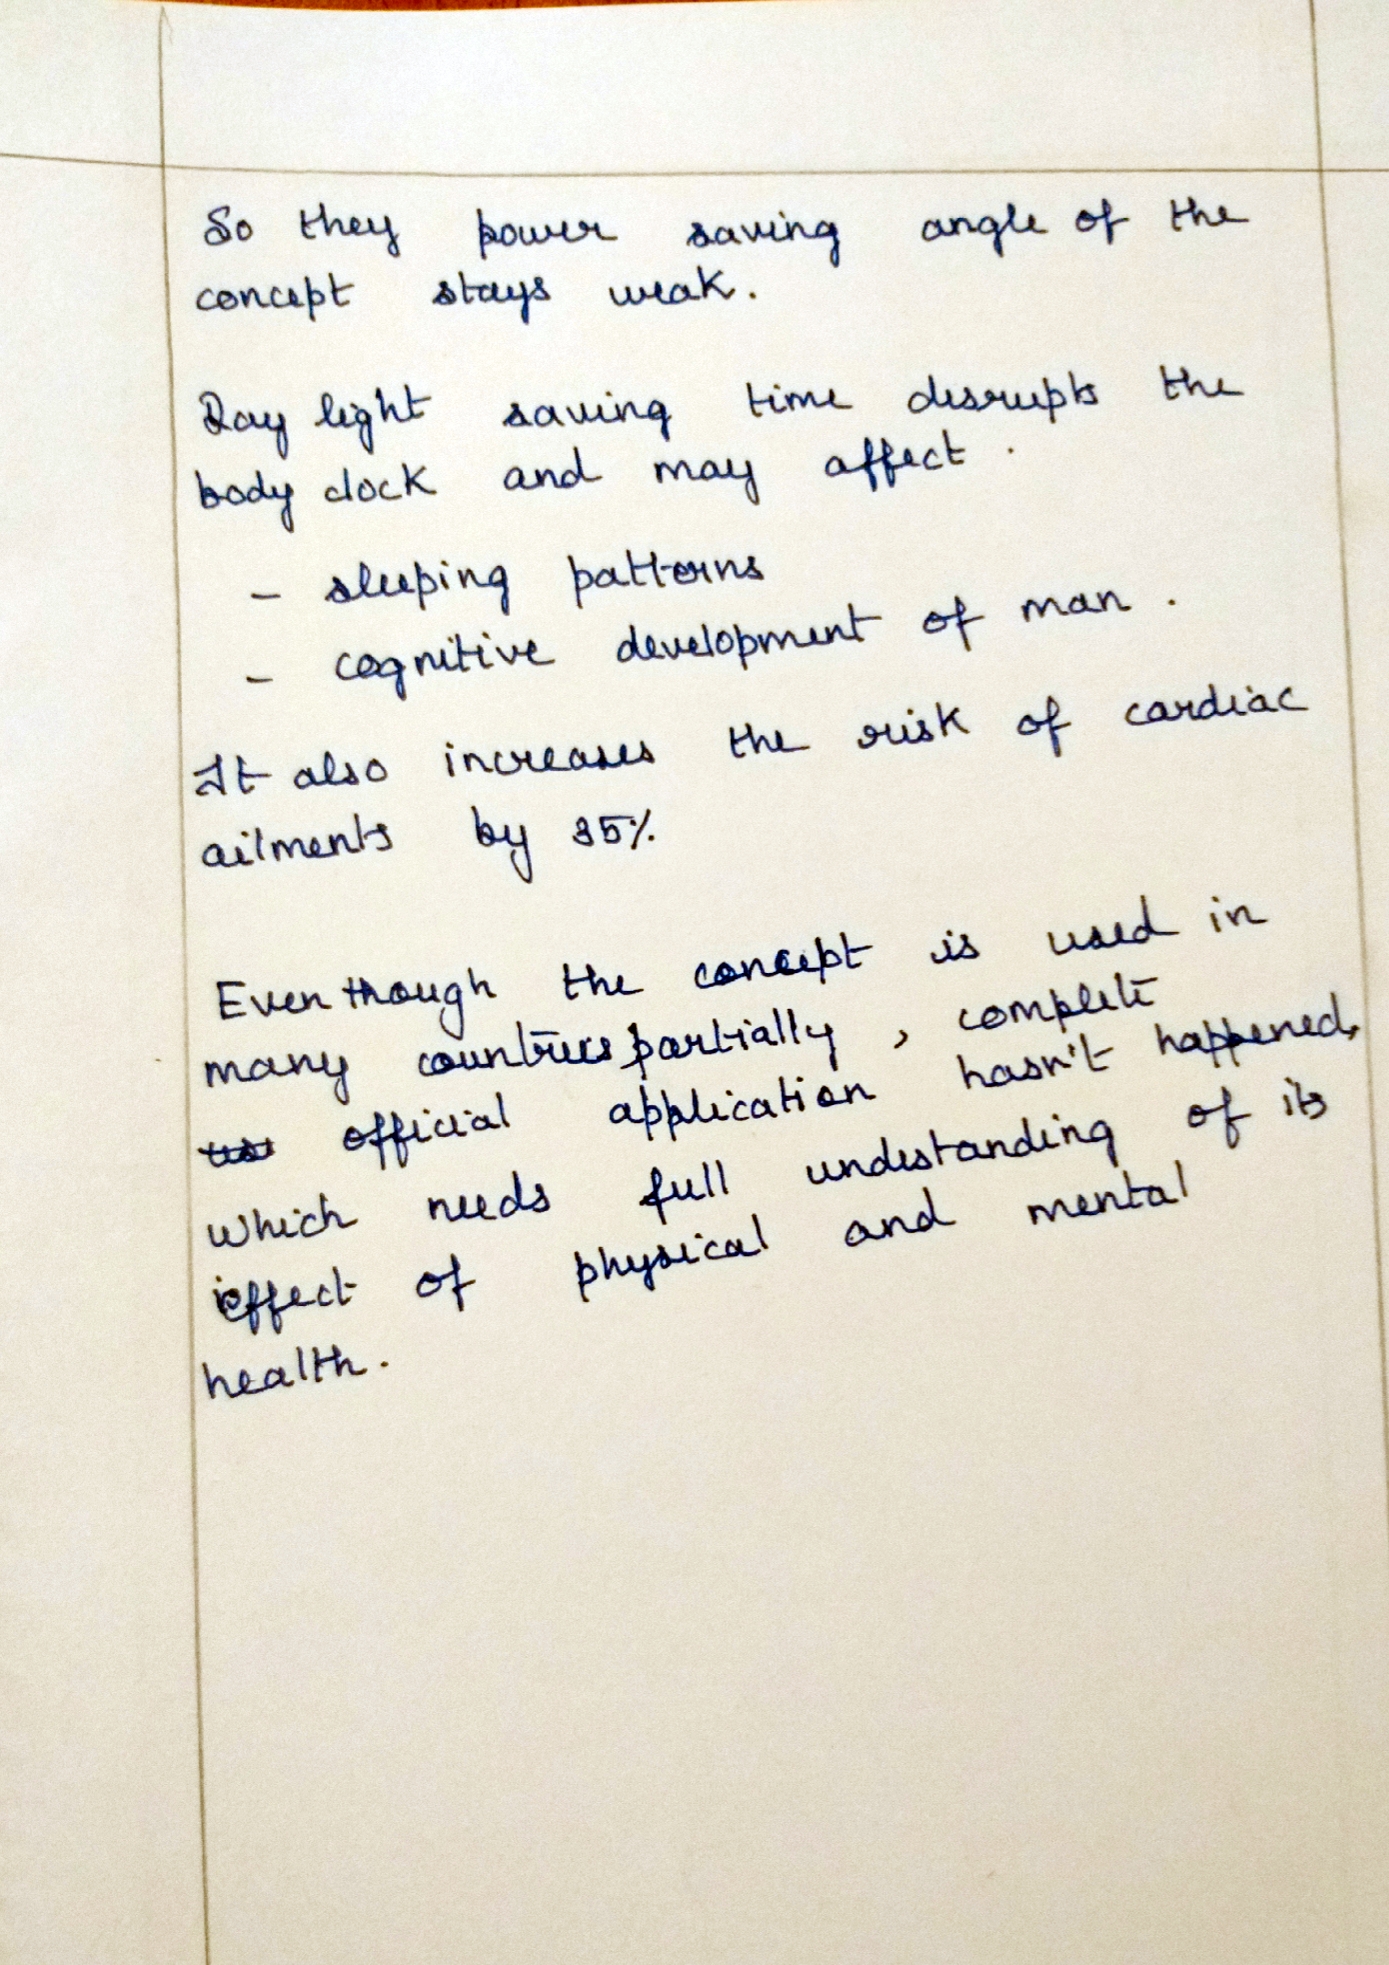 So they power saving angle of the
concept stays weak.
Day light saving time disrupts the
body clock and may affect .
- sleeping patterns
- cognitive development of man .
It also increases the risk of cardiac
ailments by 35%
Even though the concept is used in
many countries partially , complete
official application hasn't happened,
which needs full undestanding of its
effect of physical and mental
health.